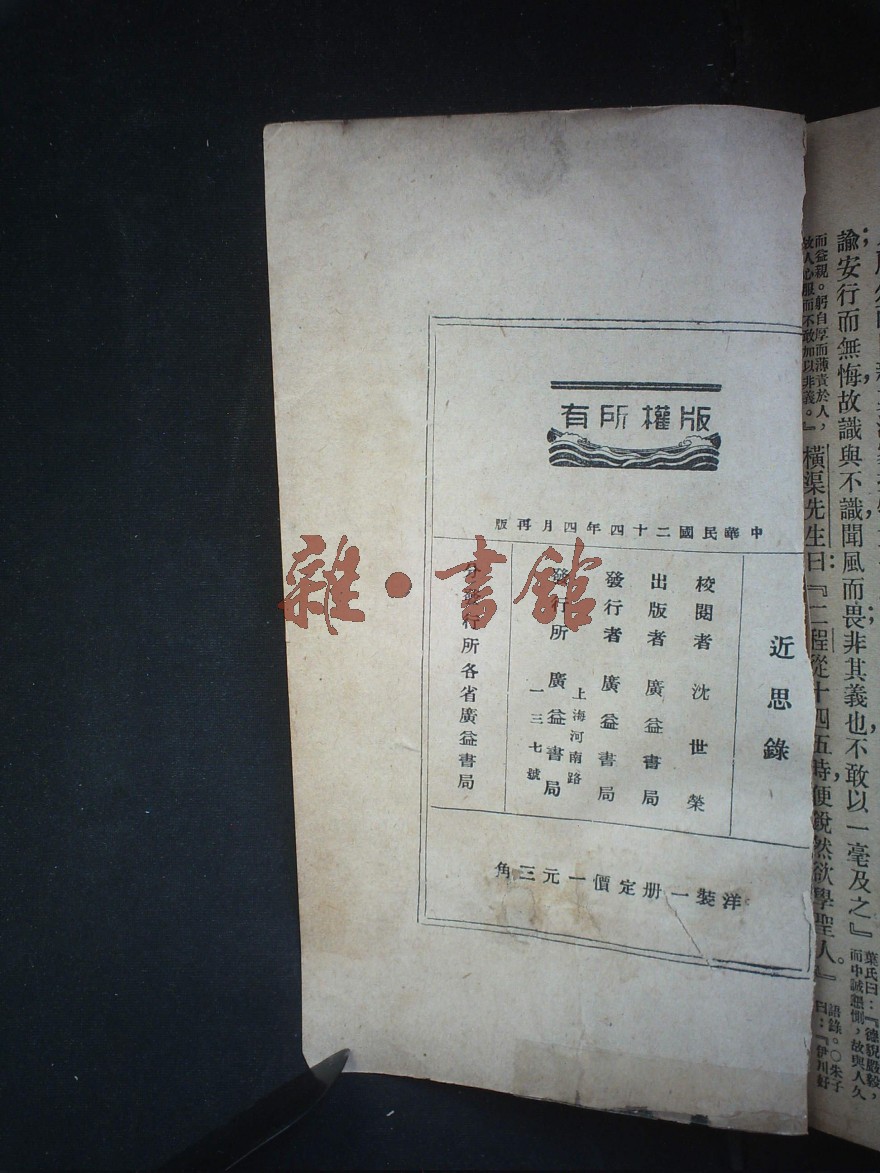 諭安行而無悔故識與不識聞風而畏非其義也不敢以一毫及之』
葉氏曰：『德貌嚴毅，
而中誠懇惻，故與人久
而益親。躬自厚而薄責於人，
故人心服而不敢加以非義。』
橫渠先生曰：『二程從十四五時便銳然欲學聖人。』
語錄。○朱子
曰：『伊川好
版權所有
中華民國二十四年四月再版
近思錄
校閱者 沈世榮
出版者 廣益書局
發行者 廣益書局
發行所 廣益書局
上海河南路
一三七號
分發行所各省廣益書局
洋裝一册定價一元三角
雜·書館